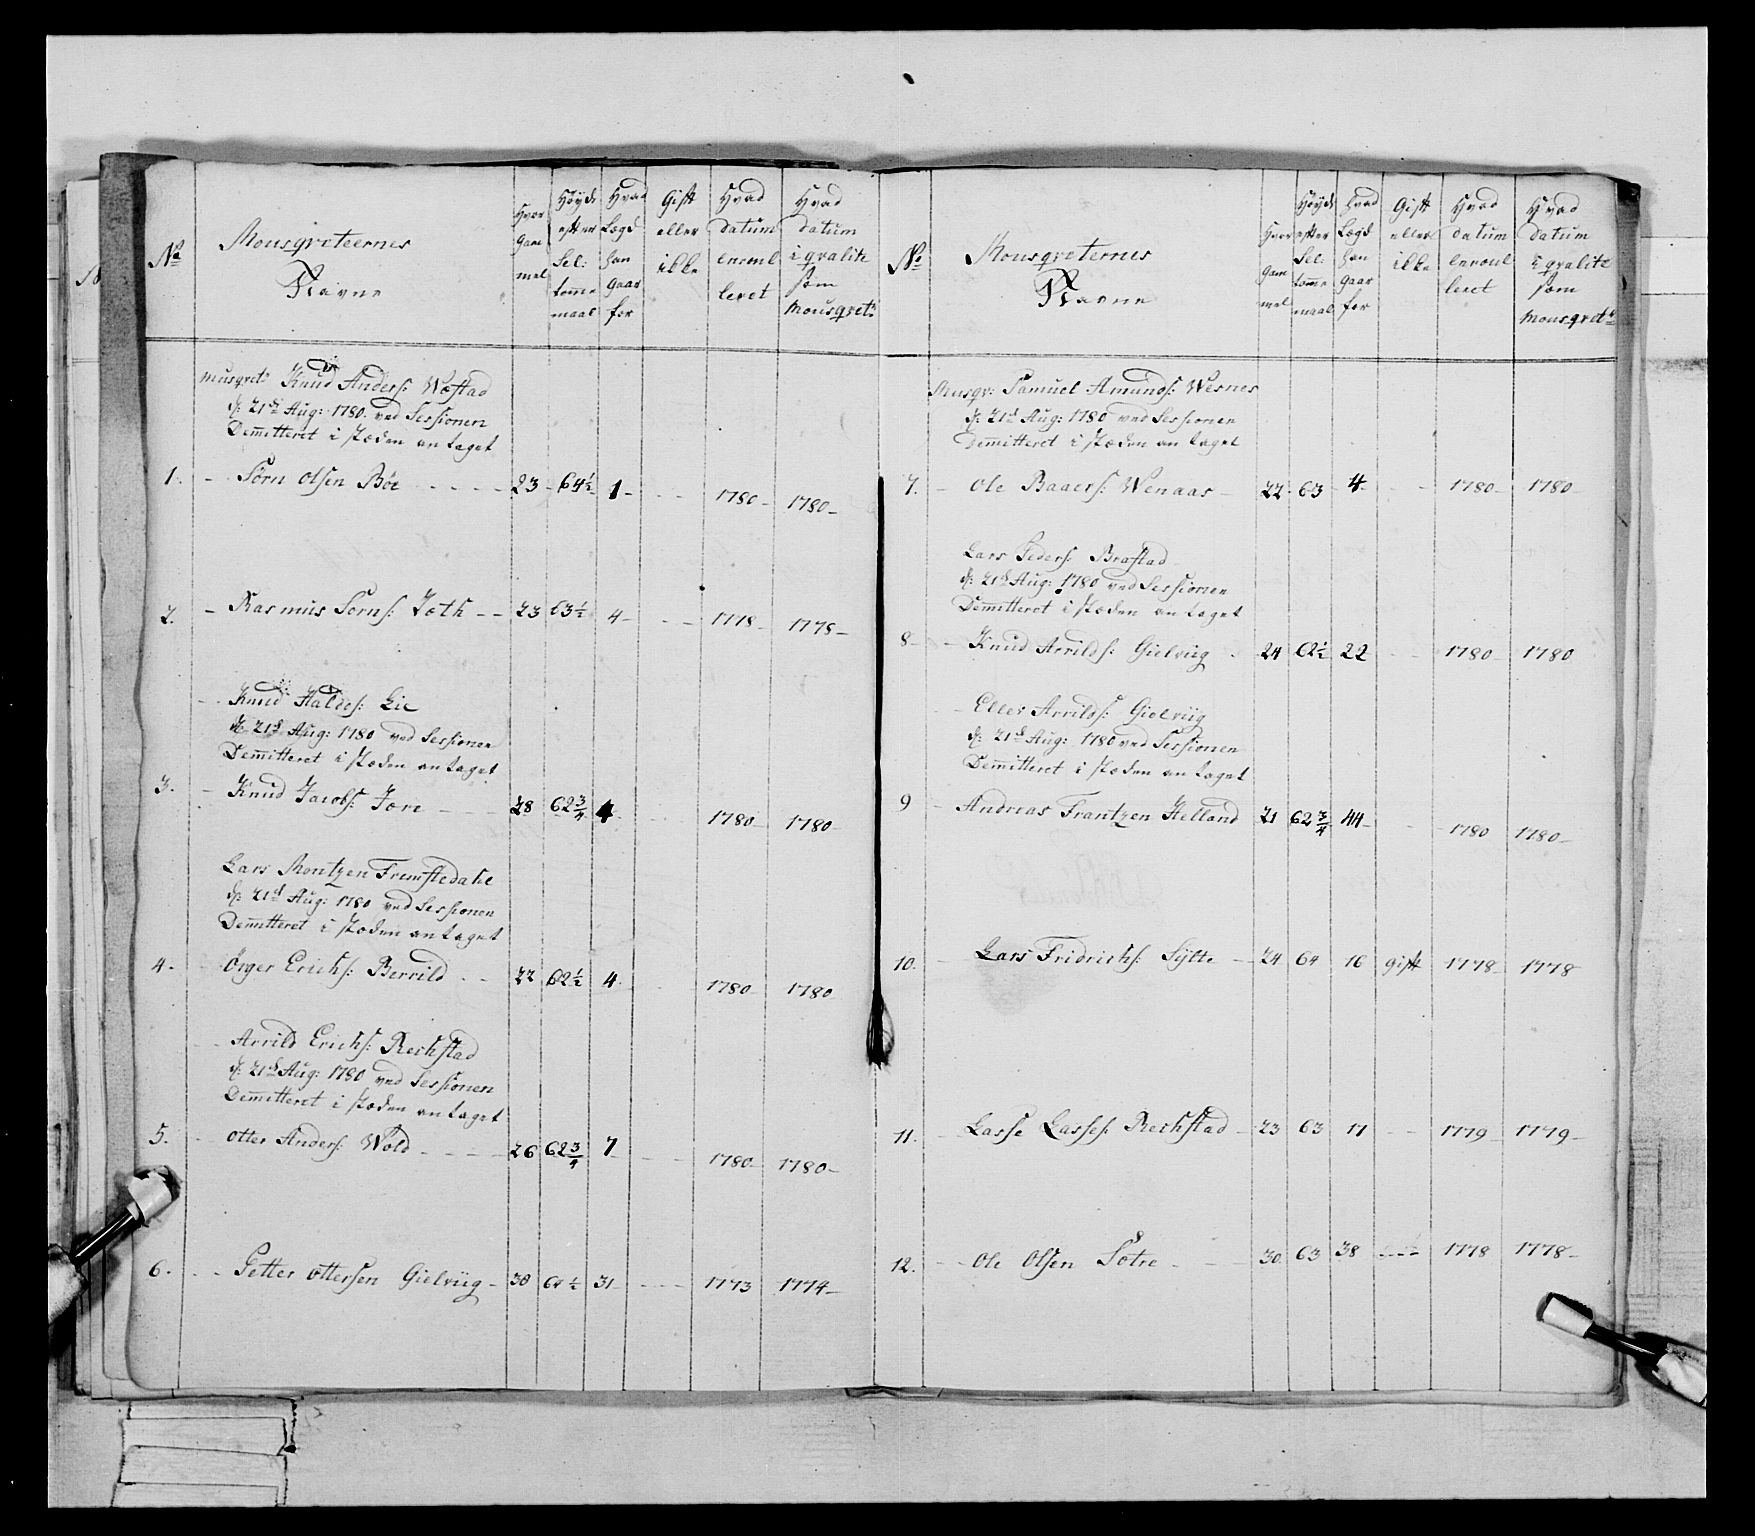 No
Mousqveteernes
Navne
Hvor gam mel
Høyde efter Sel: tomme maal
Hvad Lægd han gaar for
Gift eller ikke
Hvad datum enroul leret
Hvad datum i qvalite som Mousqvetr
musqvetr Knud Anders: Wæstad
d: 21de Aug: 1780. ved Sessionen
Demitteret i stæden antaget
1. Sørn Olsen Böe 23 64½ 1 1780 1780
2. Rasmus Sørns: Jæth 23 63½ 4 1778 1778
Knud Haldos: Lie
d: 21d Aug: 1780 ved Sessionen
Demitteret i stæden antaget
3. Knud Jacobs: Jøre 28 62¾ 4 1780 1780
Lars Montzen Fremstedahl
d: 21d Aug: 1780 ved Sessionen
Demitteret i stæden antaget
4. Örger Erichs: Berrild 22 62½ 4 1780 1780
Arrild Erichs: Rechstad
d: 21d Aug: 1780 ved Sessionen
Demitteret i stæden antaget
5. Otter Anders: Wold 26 62¾ 7 1780 1780
6. Petter Ottersen Gielviig 30 64½ 31 1773 1774
No
Mousqveternes
Navne
Hvor gam mel
Høyde efter Sel: tomme maal
Hvad Lægd han gaar for
Gift eller ikke
Hvad datum enroul leret
Hvad datum i qvalite som Mousqvetr
Musqv: Samuel Amunds: Wesnes
d: 21d Aug: 1780 ved Sessionen
Demitteret i stæden antaget
7. Ole Baaers: Wenaas 22 63 4 1780 1780
Lars Peders: Brastad
d: 21d Aug: 1780 ved Sessionen
Demitteret i stæden antaget
8 Knud Arrilds: Gielviig 24 62½ 22 1780 1780
Eller Arrilds: Gielviig
d: 21d Aug: 1780 ved Sessionen
Demitteret i stæden antaget
9 Andreas Frantzen Helland 21 62¾ 44 1780 1780
10. Lars Fridrichs: Sylte 24 64 16 gift 1778 1778
11. Lasse Lasses: Rechstad 23 63 17 1779 1779
12. Ole Olsen Sotre 30 63 38 1778 1778